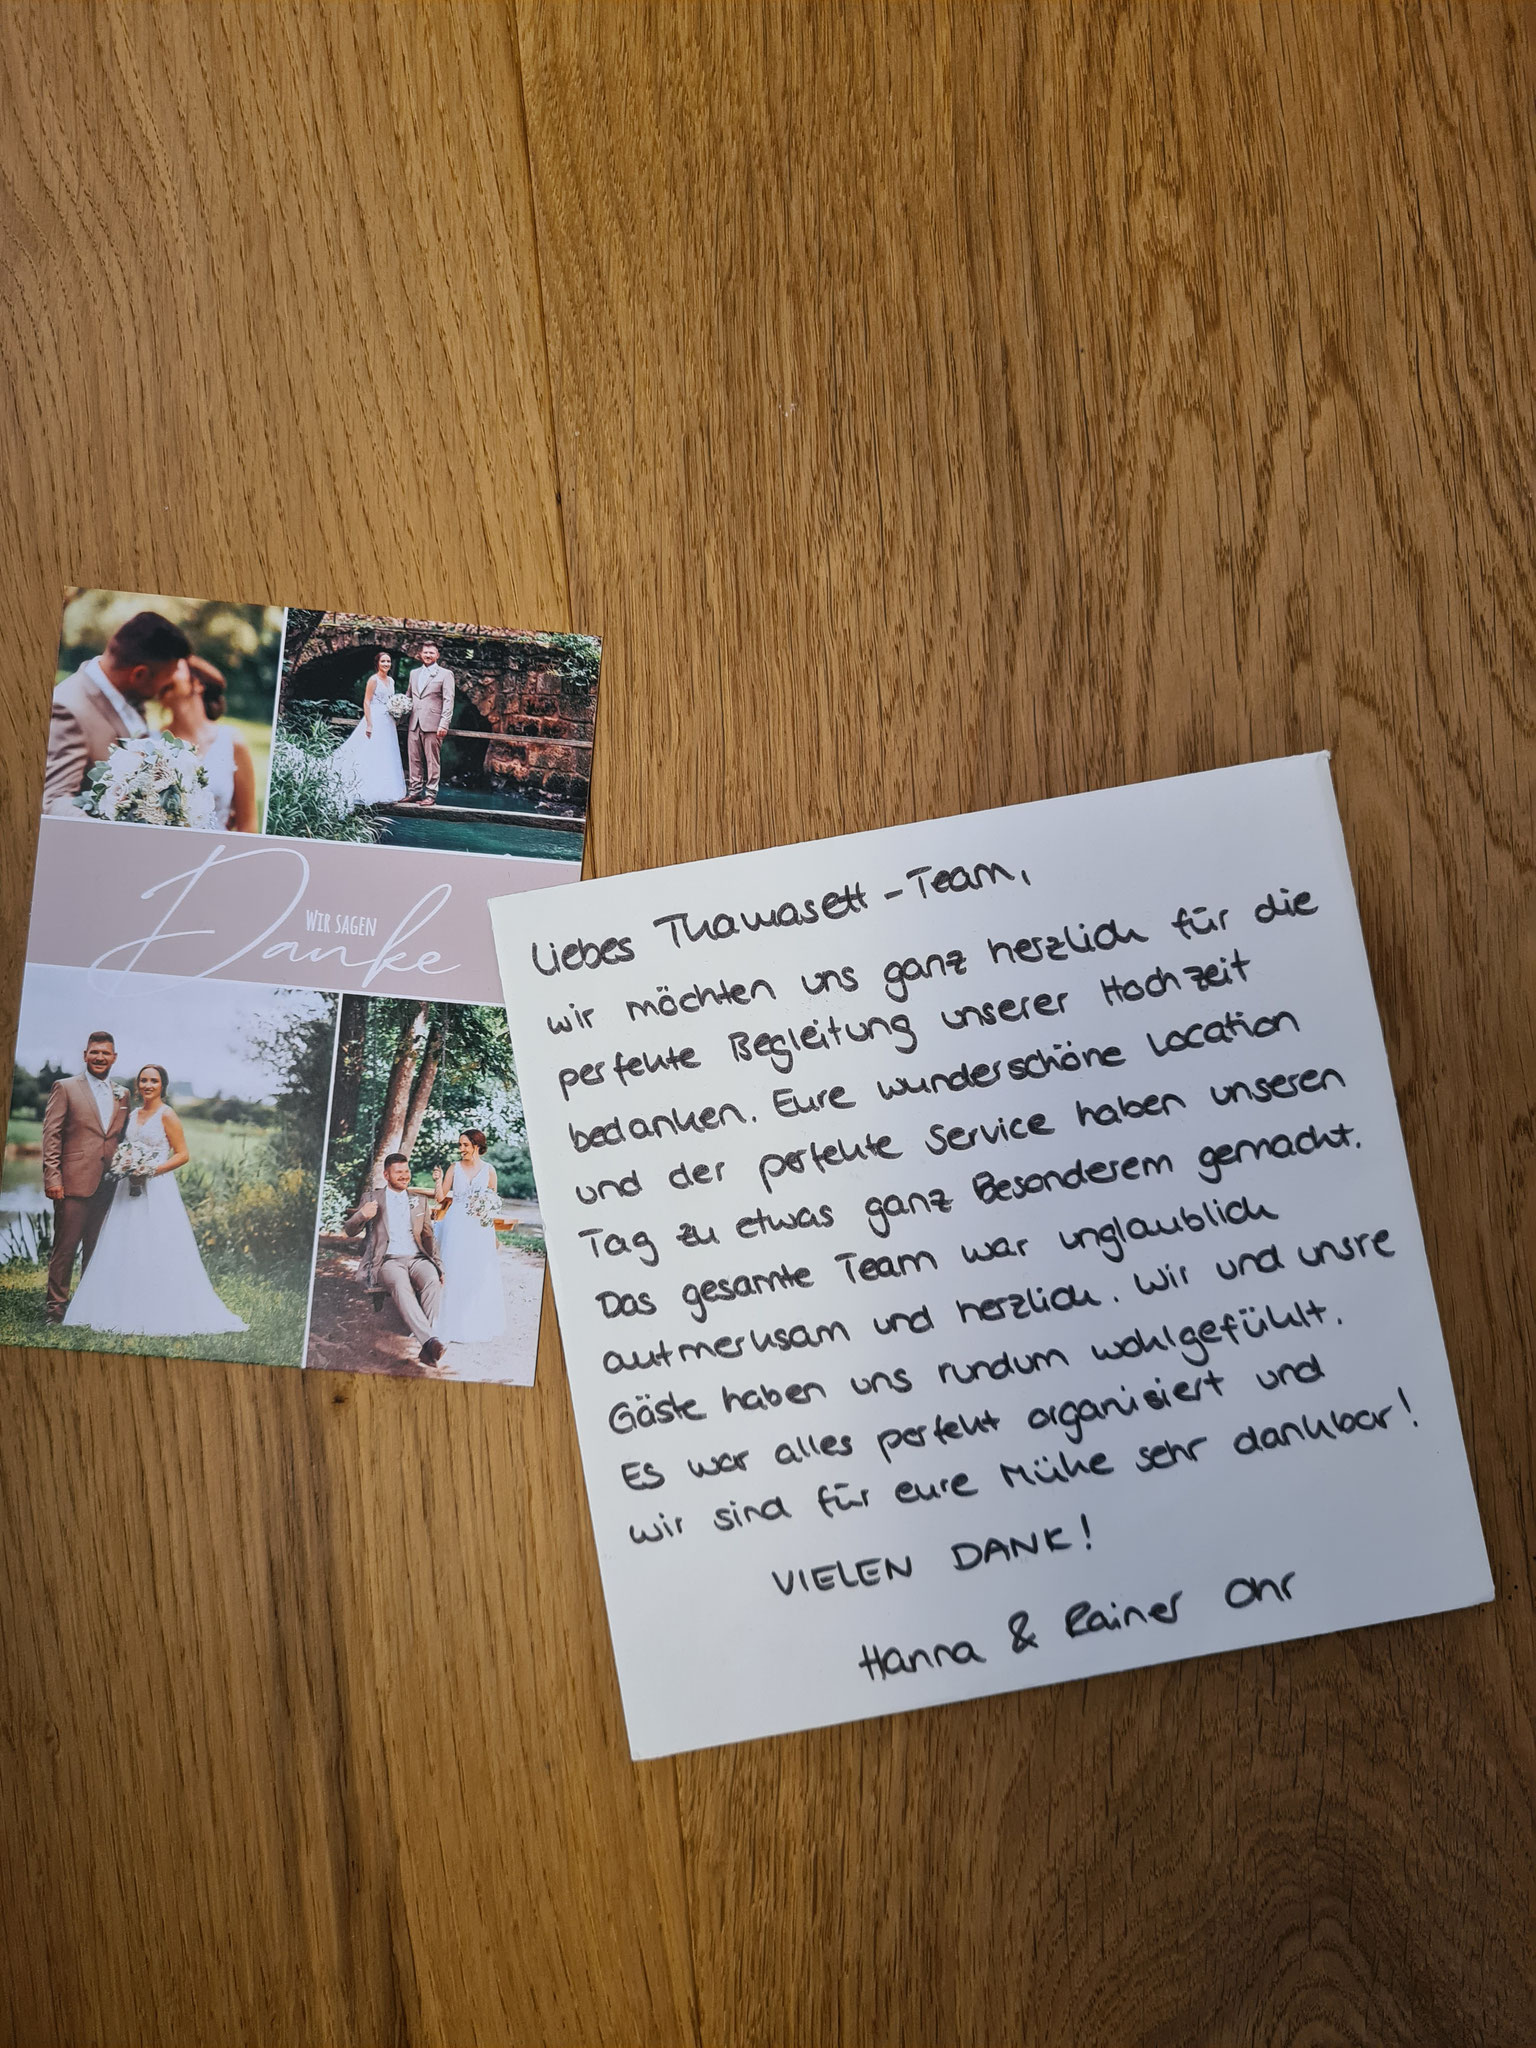 Wir sagen
Danke
Liebes Thamasett-Team,
wir möchten uns ganz herzlich für die
perfekte Begleitung unserer Hochzeit
bedanken. Eure wunderschöne Location
und der perfekte Service haben unseren
Tag zu etwas ganz Besonderem gemacht.
Das gesamte Team war unglaublich
aufmerksam und herzlich. Wir und unsre
Gäste haben uns rundum wohlgefühlt.
Es war alles perfekt organisiert und
wir sind für eure Mühe sehr dankbar!
VIELEN DANK!
Hanna & Rainer Ohr